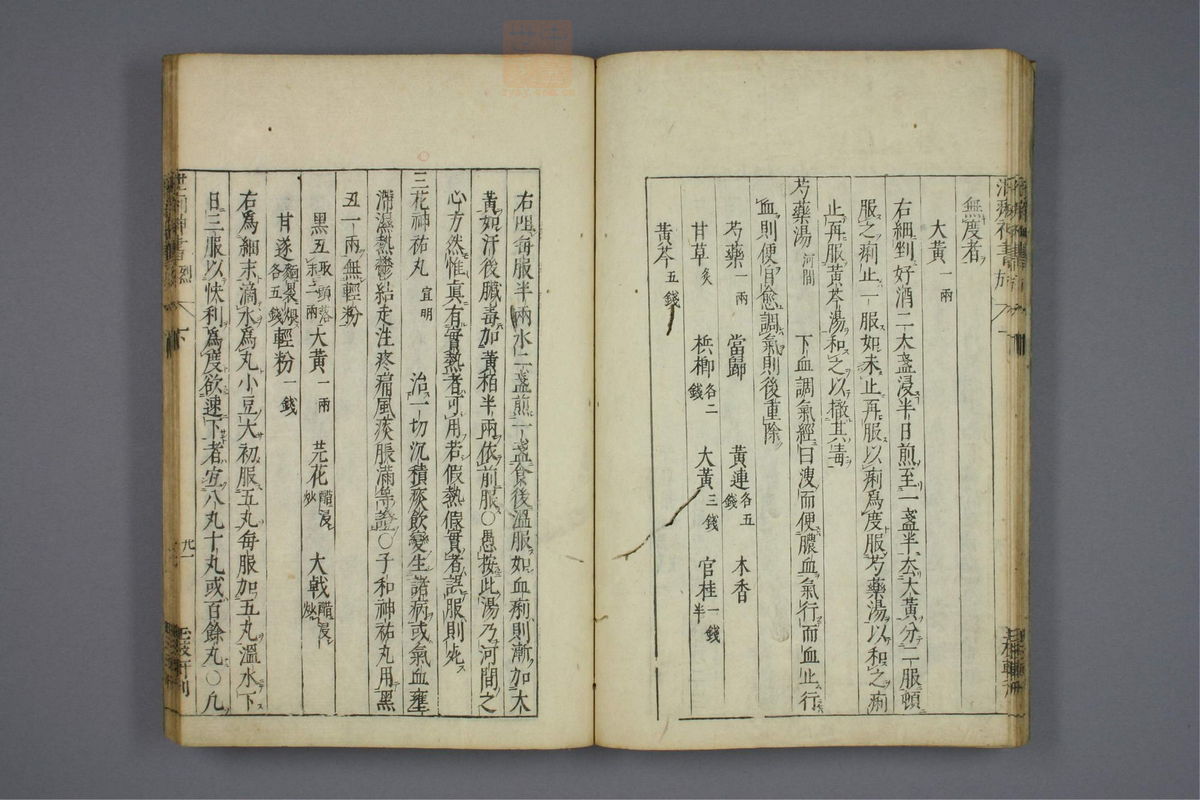 無度者
大黃一兩
右細剉好酒二大盞浸半日煎至一盞半去大黃分二服頓
服之痢止一服如未止再服以痢爲度服芍藥湯以和之痢
止再服黃芩湯和之以撤其毒
芍藥湯 河間 下血調氣經曰溲而便膿血氣行而血止行
血則便自愈調氣則後重除
芍藥一兩 當歸 黃連各五錢 木香
甘草炙 梹榔各二錢 大黃三錢 官桂一錢半
黃芩五錢
右㕮每服半兩水二盞煎一盞食後溫服如血痢則漸加大
黃如汗後臟毒加黃栢半兩依前服○愚按此湯乃河間之
心方然惟眞有實熱者可用若假熱假實者誤服則死
三花神祐丸 宜明 治一切沉積痰飮變生諸病或氣血壅
滯濕熱鬱結走注疼痛風痰脹滿等證○子和神祐丸用黑
丑一兩無輕粉
黑丑取頭末二兩 大黃一兩 芫花醋浸炒 大戟醋浸炒
甘遂麵裹煨各五錢 輕粉一錢
右爲細末滴水爲丸小豆大初服五丸每服加五丸溫水下
日三服以快利爲度欲速下者宜八丸十丸或百餘丸○凡